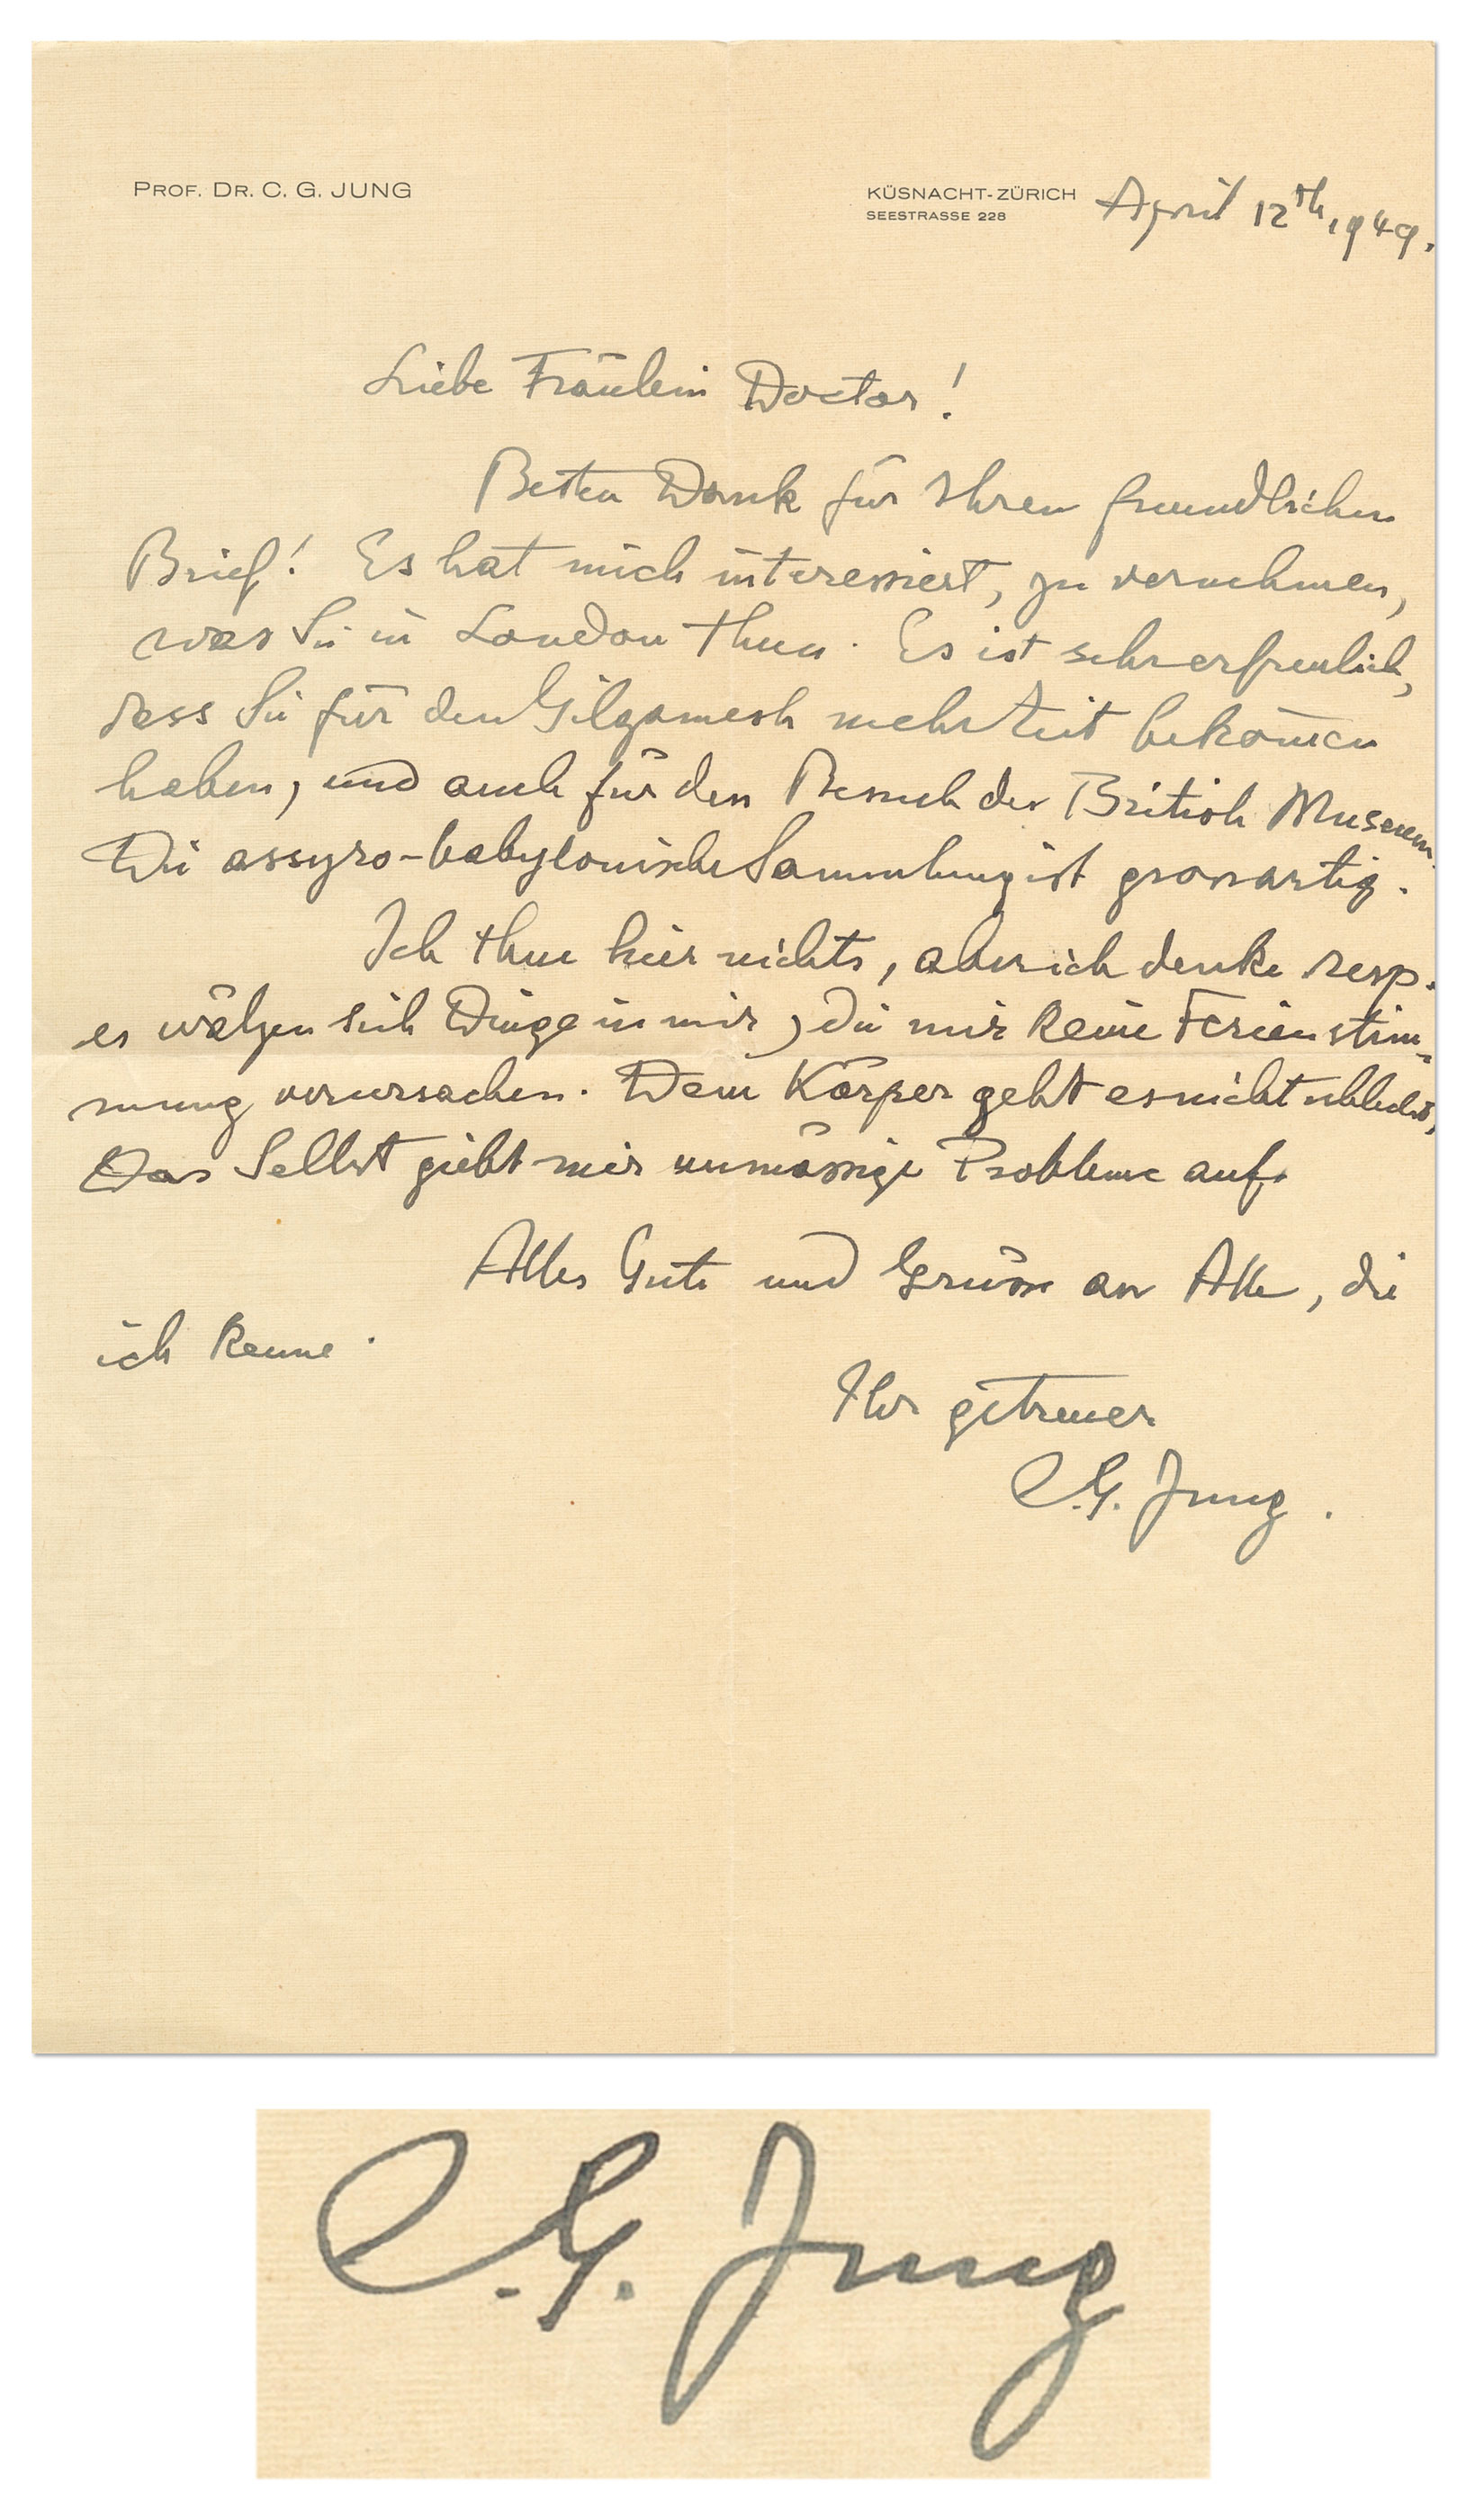 PROF. DR. C. G. JUNG
KÜSNACHT-ZÜRICH
SEESTRASSE 228
April 12th, 1949.
Liebe Fräulein Doctor!
Besten Dank für Ihren freundlichen
Brief! Es hat mich interessiert, zu vernehmen,
was Sie in London thun. Es ist sehr erfreulich,
dass Sie für den Gilgamesh mehr Zeit bekom̄en
haben, und auch für den Besuch des British Museum.
Die assyro-babylonische Sammlung ist grossartig.
Ich thue hier nichts, aber ich denke resp.
es wälzen sich Dinge in mir, die mir keine Ferienstim-
mung verursachen. Dem Körper geht es nicht schlecht,
Das Selbst giebt mir unmässige Probleme auf.
Alles Gute und Grüsse an Alle, die
ich kenne.
Ihr getreuer
C.G. Jung.
C.G. Jung